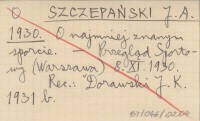 O SZCZEPAŃSKI J.A.
1930. O najmniej znanym
sporcie. — Przegląd Sporto-
wy (Warszawa) 8.XI.1930.
Rec.: Dorawski J.K.
1931 b.